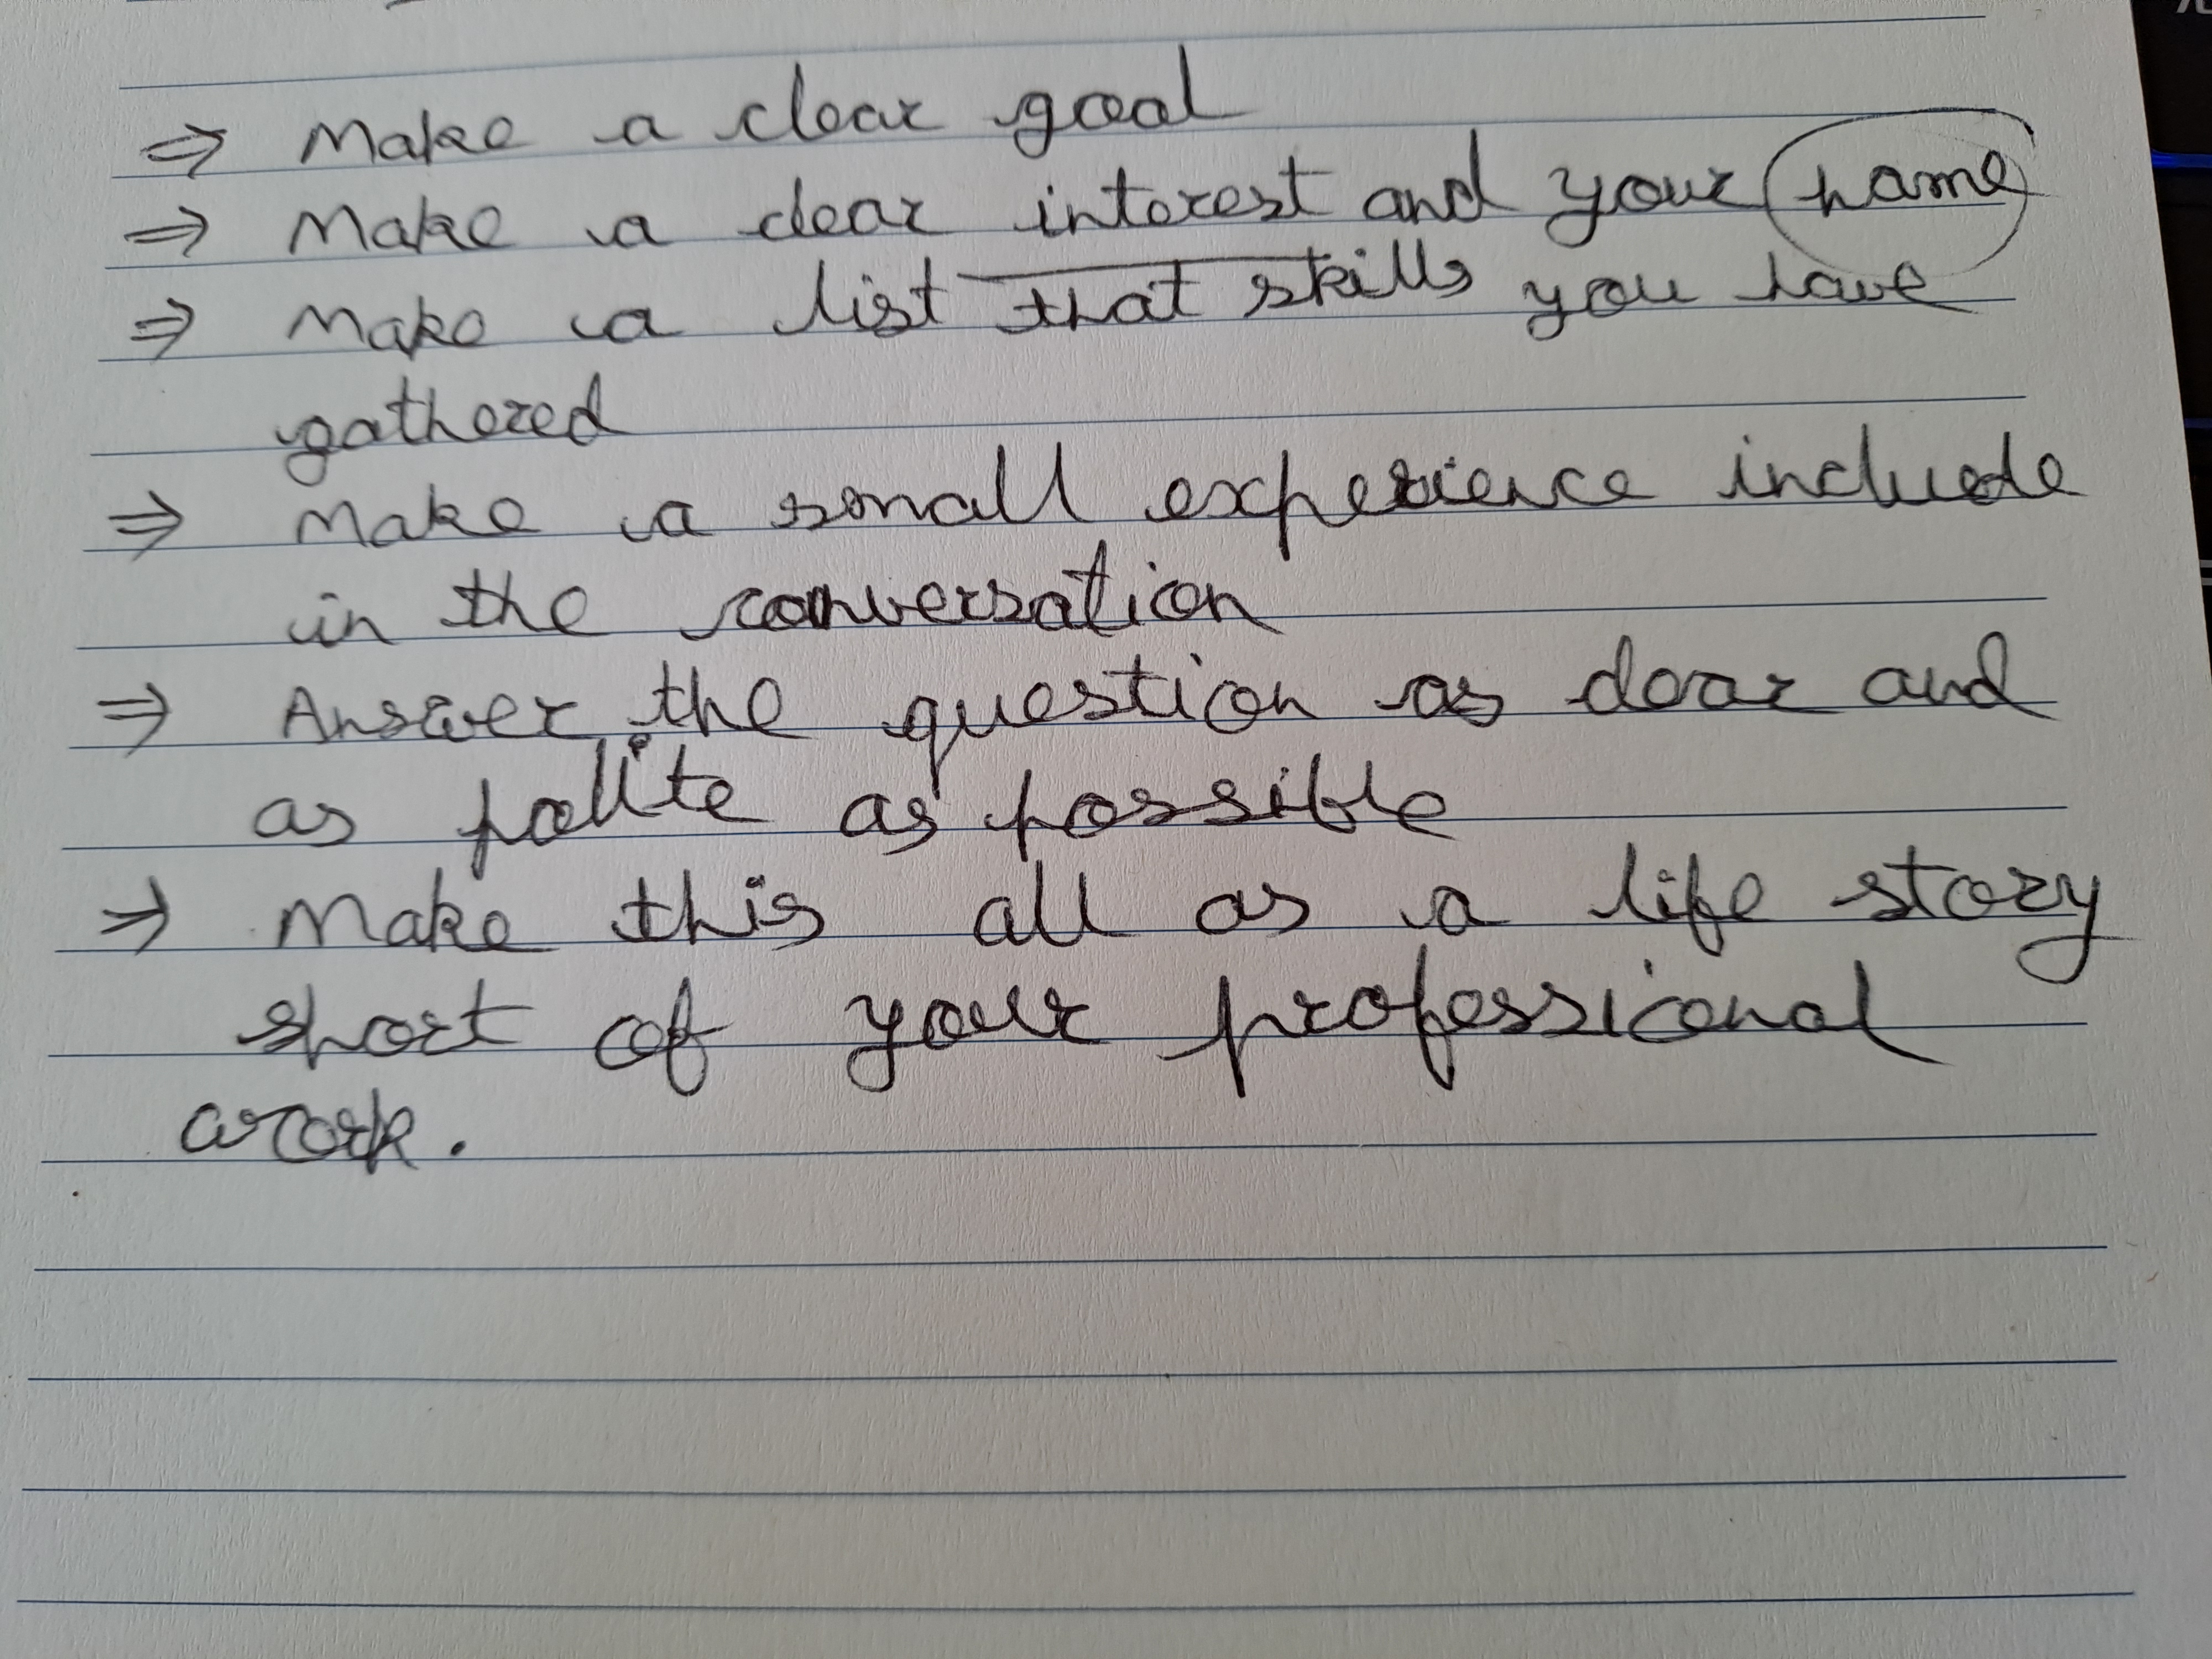 ⇒ Make a clear goal
⇒ Make a clear interest and your name
⇒ Make a list that skills you have
gathered
⇒ Make a small experience include
in the conversation
⇒ Answer the question as clear and
as polite as possible
→ Make this all as a life story
short of your professional
work.